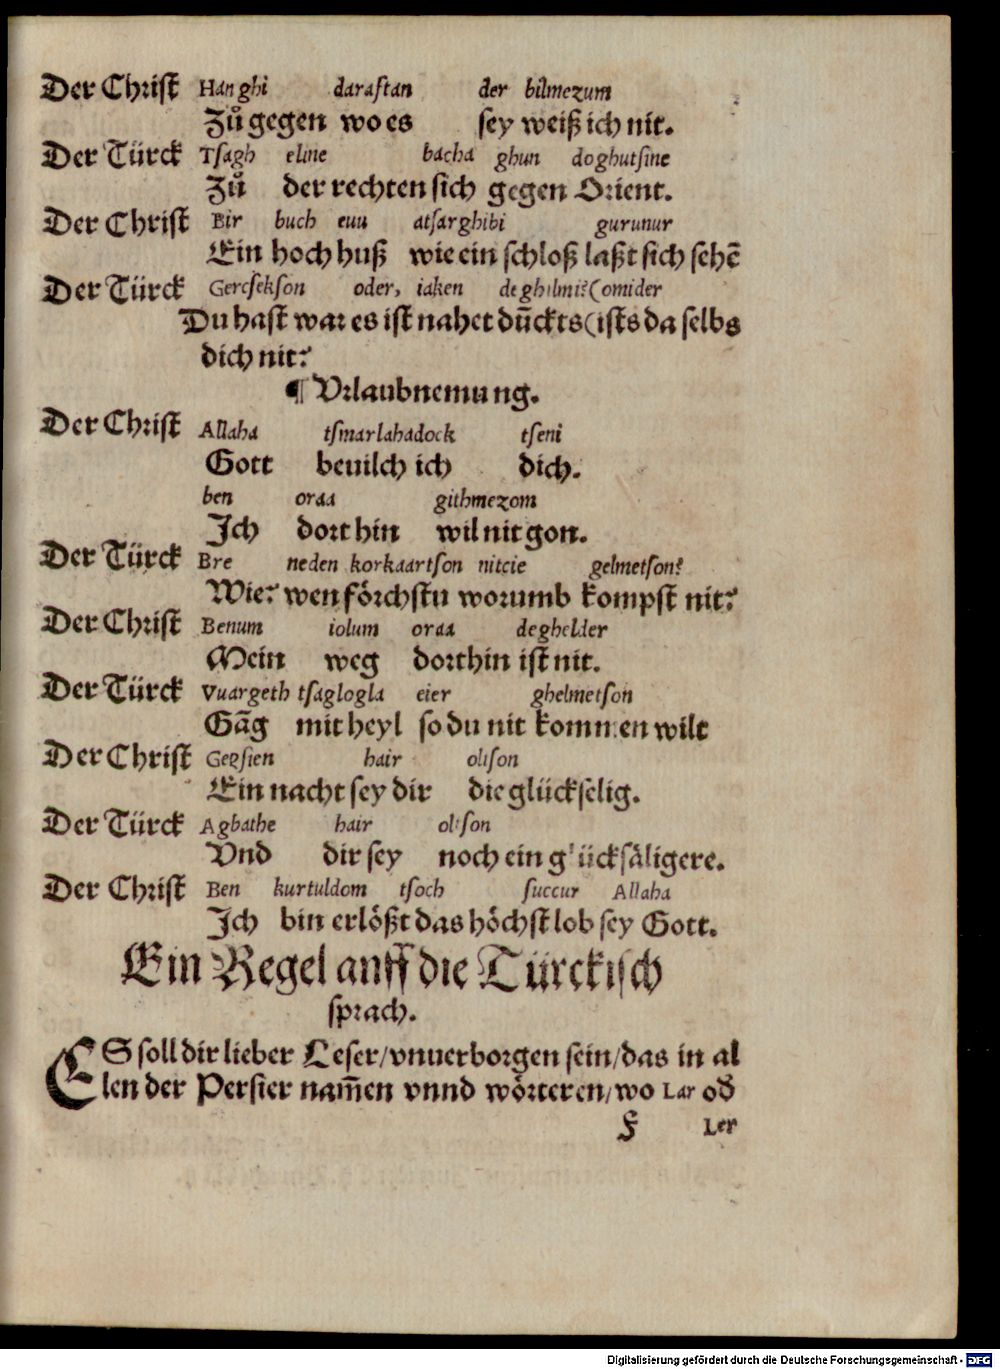 Der Christ Hanghi daraſtan der bilmezum
Zů gegen wo es sey weiß ich nit.
Der Türck Tſagh eline bacha ghun doghutſine
Zů der rechten sich gegen Orient.
Der Christ Bir buch euu atſarghibi gurunur
Ein hoch huß wie ein schloß laßt sich sehē
Der Türck Gercſekſon oder, iaken deghilmi?(omider
Du hast war es ist nahet dūckts(ists da selbs
dich nit?
¶ Vrlaubnemung.
Der Christ Allaha tſmarlahadock tſeni
Gott beuilch ich dich.
ben oraa githmezom
Ich dort hin wil nit gon.
Der Türck Bre neden korkaartſon nitcie gelmetſon?
Wie? wen förchstu worumb kompst nit?
Der Christ Benum iolum oraa deghelder
Mein weg dorthin ist nit.
Der Türck Vuargeth tſaglogla eier ghelmetſon
Gāg mit heyl so du nit kommen wilt
Der Christ Gegſien hair oliſon
Ein nacht sey dir die glückselig.
Der Türck Agbathe hair oliſon
Vnd dir sey noch ein glücksäligere.
Der Christ Ben kurtuldom tſoch ſuccur Allaha
Ich bin erlößt das höchst lob sey Gott.
Ein Regel auff die Türckisch
sprach.
ES soll dir lieber Leser/vnuerborgen sein/das in al
len der Persier nam̄en vnnd wörteren/wo Lar od
F Ler
Digitalisierung gefördert durch die Deutsche Forschungsgemeinschaft - DFG